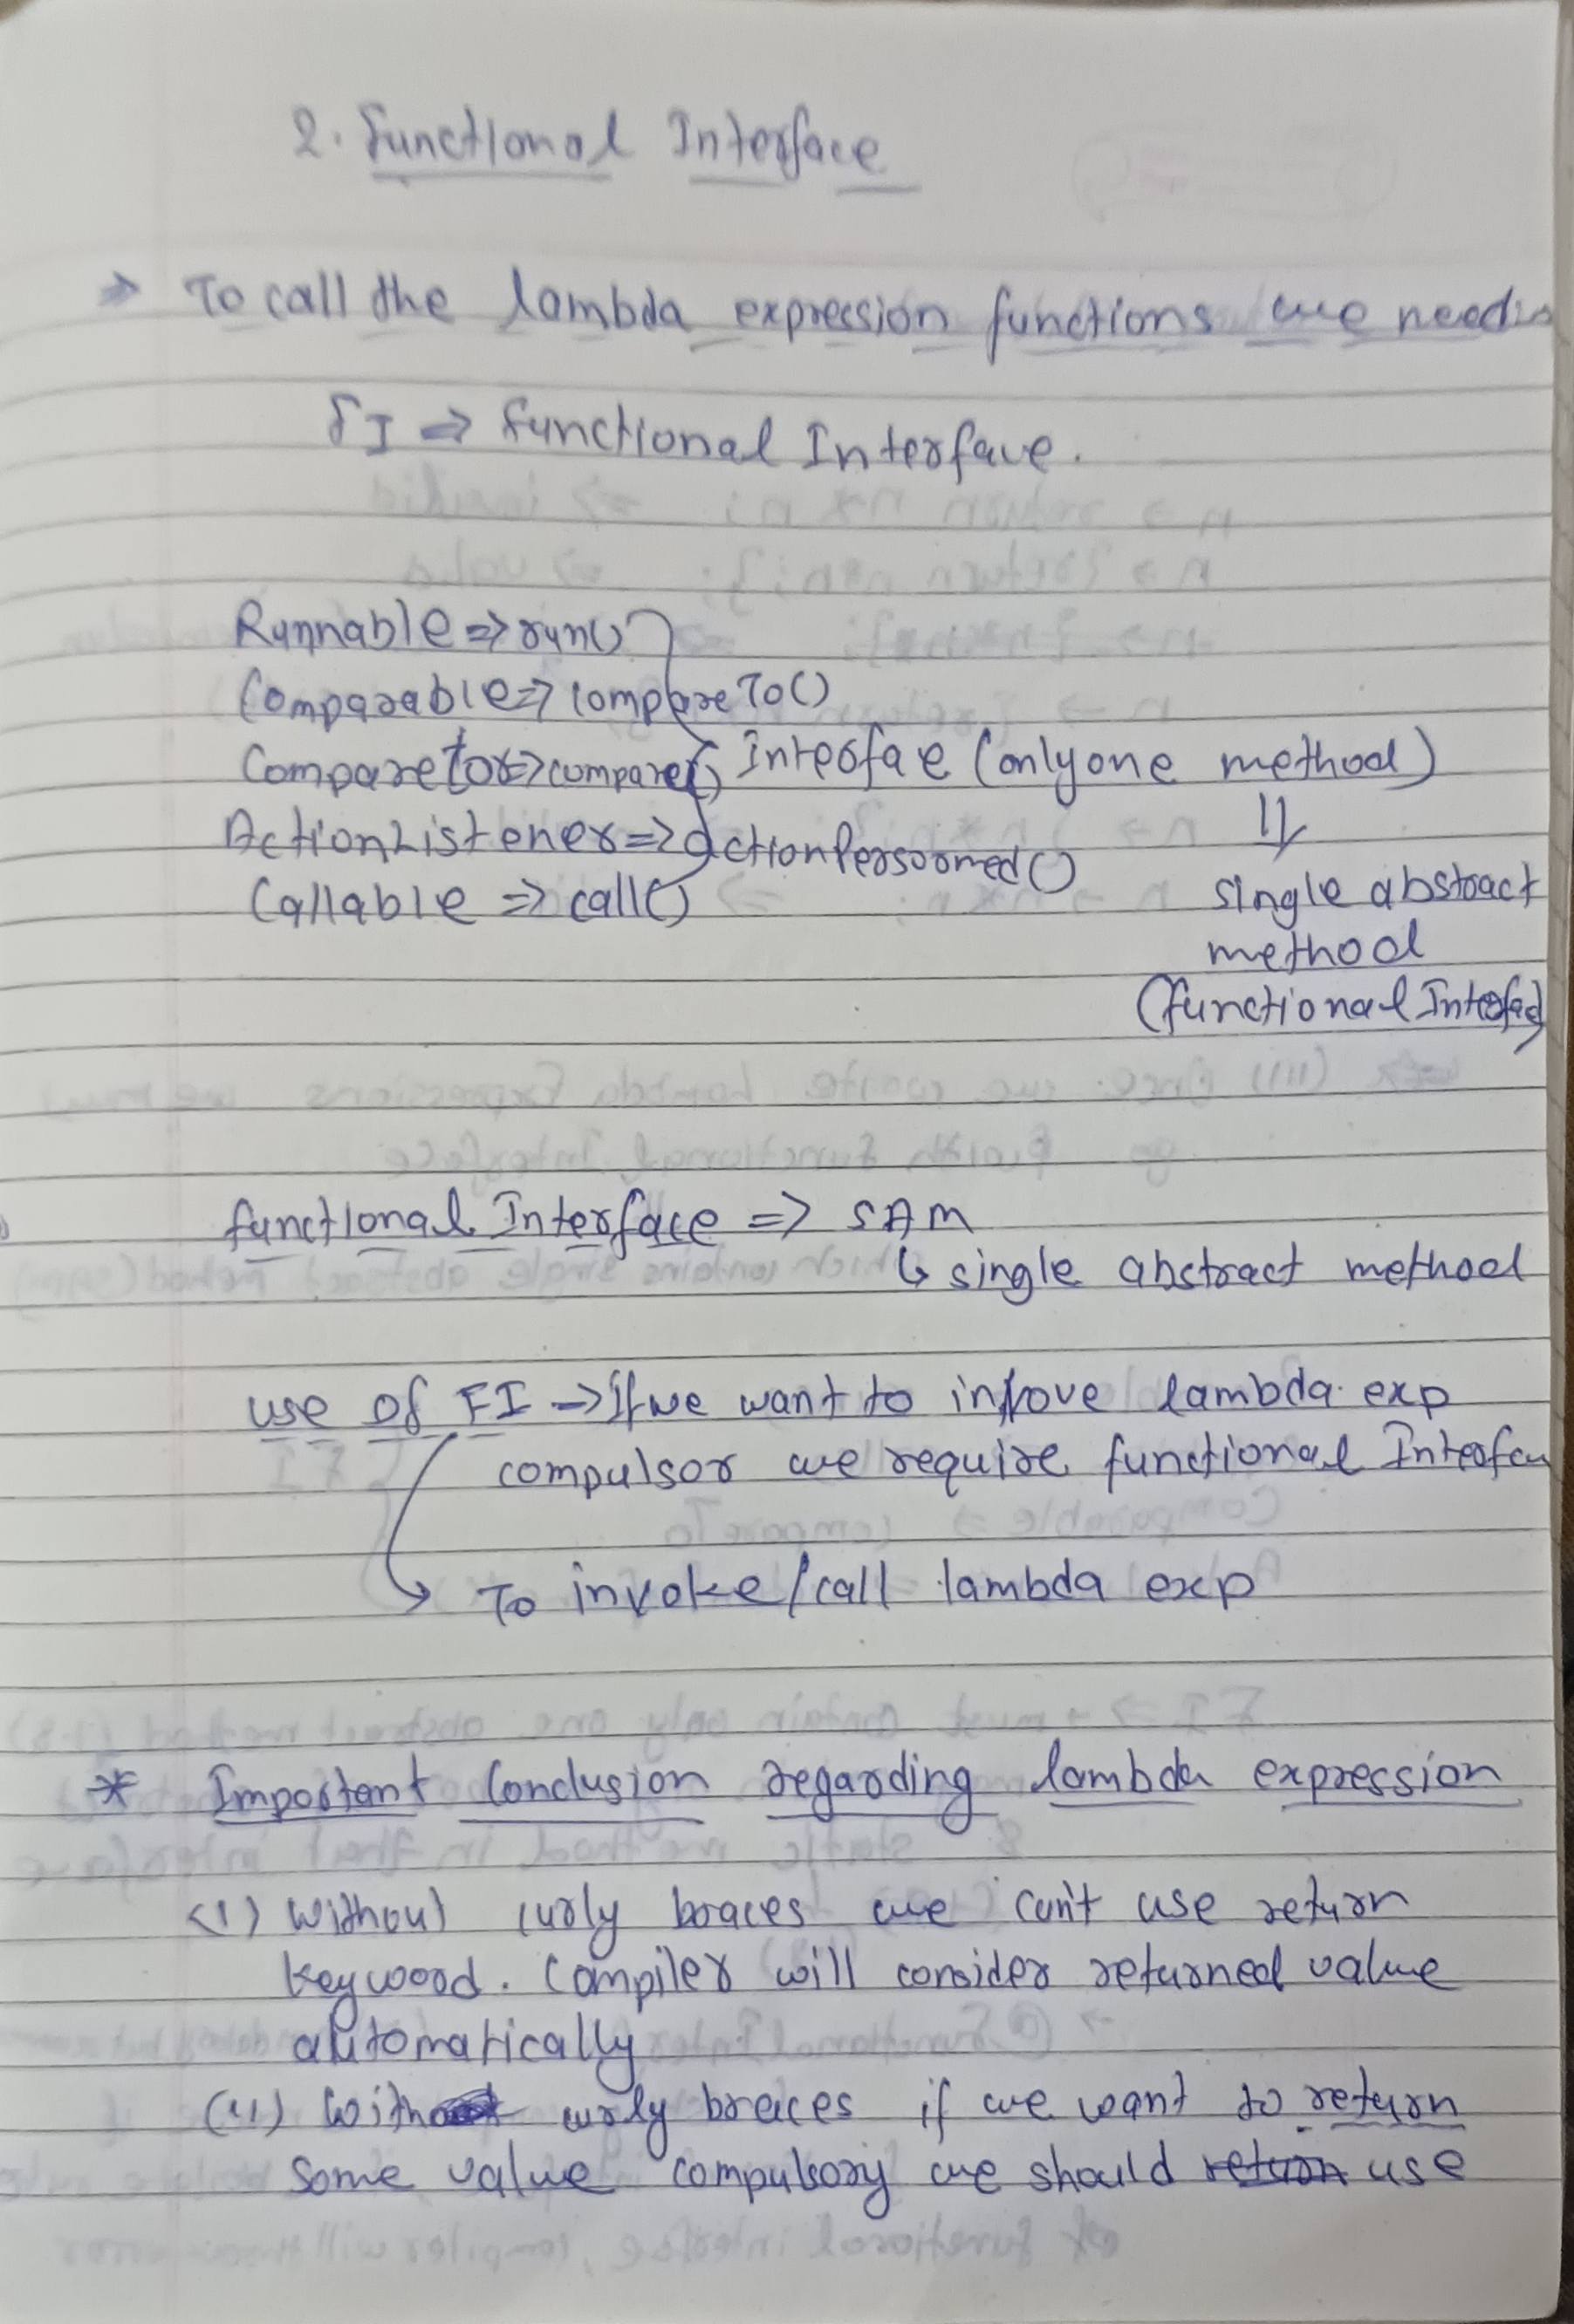 2. Functional Interface
⇒ To call the lambda expression functions we need
FI ⇒ Functional Interface.
Runnable ⇒ run()
Comparable ⇒ compareTo()
Comparetor ⇒ compare() Interfae (only one method)
ActionListener ⇒ actionPersormed()
⇓
Callable ⇒ call()
single abstract
method
(functional Interface)
functional Interface => SAM
↳ single abstract method
use of FI → If we want to invove lambda exp
compulsor we require functional Interface
↳ To invoke/call lambda exp
* Important Conclusion regarding lambda expression
(1) Without curly braces we can't use return
keyword. Compiler will consider returned value
automatically
(11) With curly braces if we want to return
some value compulsory we should return use